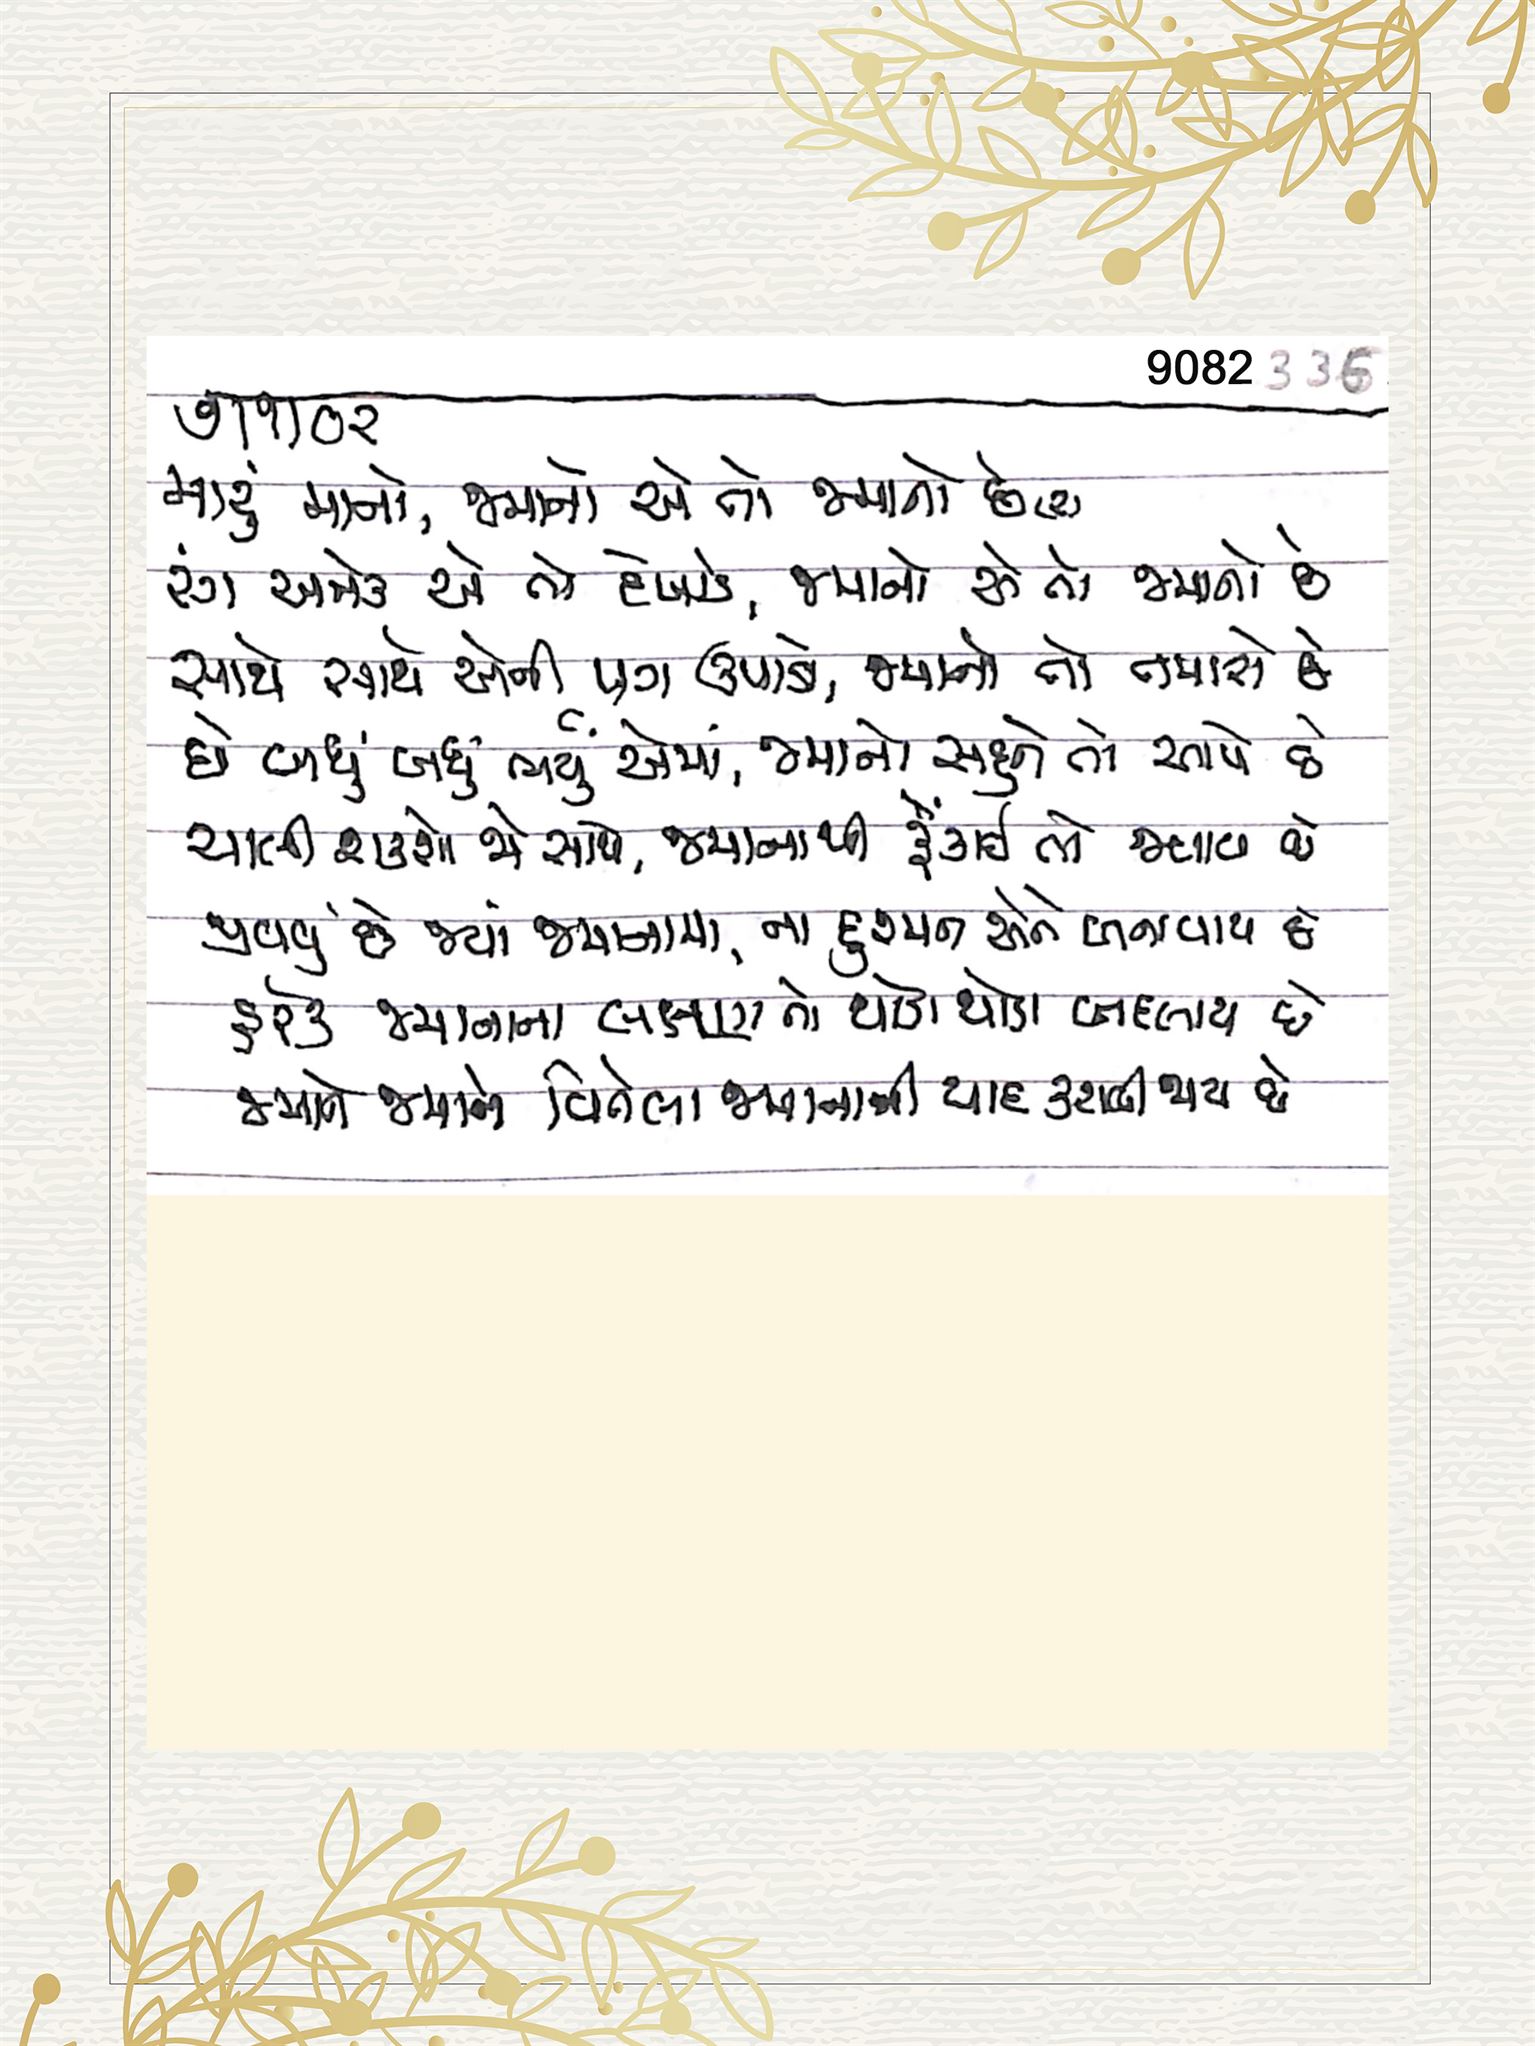 9082 336
૭/૧/૦૨
મારું માનો, જમાનો એ તો જમાનો છે(૨)
રંગ અનેક એ તો દેખાડે, જમાનો એ તો જમાનો છે
સાથે સાથે એની પગ ઉપાડો, જમાનો તો તમારો છે
છે બધું બધું ભર્યું એમાં, જમાનો સહુને તો આપે છે
ચાલી શકશો જો સાથે, જમાનાથી ફેંકાઈ તો જવાય છે
જીવવું છે જ્યાં જમાનામાં, ના દુશ્મન એને બનાવાય છે
હરેક જમાનાના લક્ષણ તો થોડા થોડા બદલાય છે
જમાને જમાને વિતેલા જમાનાની યાદ કરાવી જાય છે